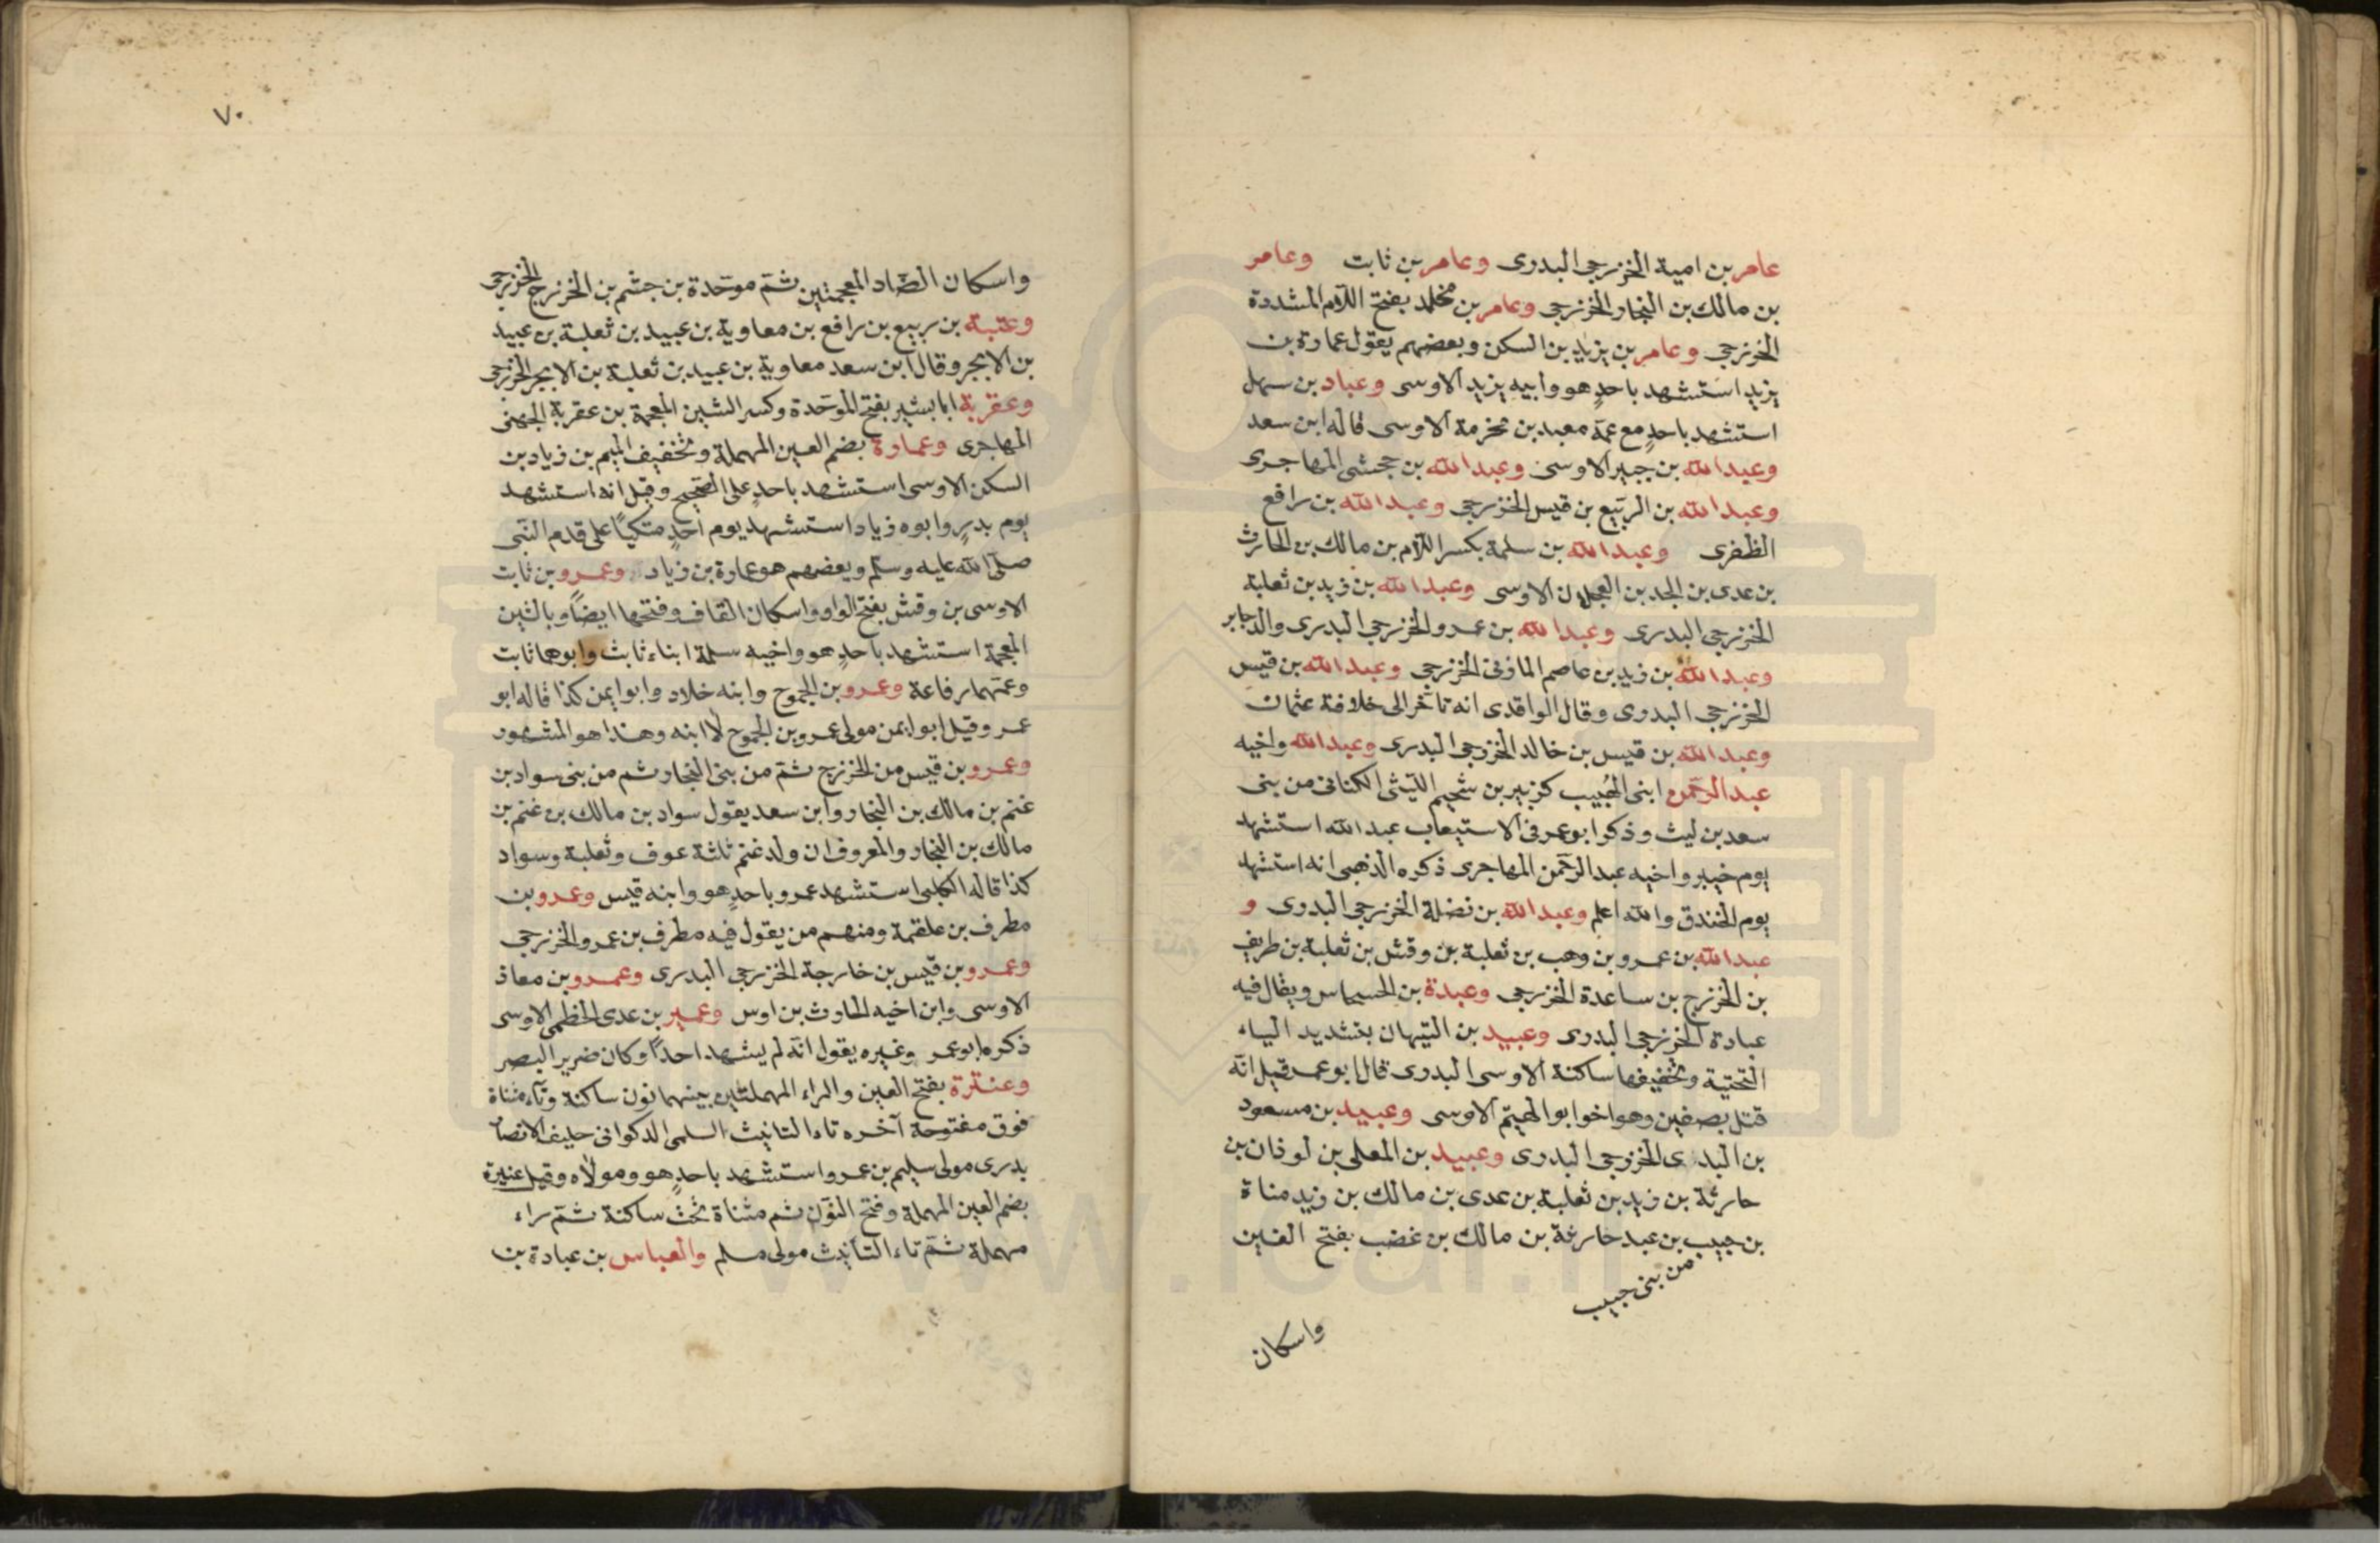 عامر بن امية الخزرجي البدرى وعامر بن ثابت وعامر
بن مالك بن النجار الخزرجى وعامر بن مخلد بفتح اللام المشددة
الخزرجى وعامر بن يزيد بن السكن وبعضهم يقول عمارة بن
يزيد استشهد باحدٍ هو وابيه يزيد الاوسى وعباد بن سهل
استشهد باحدٍ مع عمّه معبد بن مخرمة الاوسى قاله ابن سعد
وعبد الله بن جبير الاوسى وعبد الله بن جحش المهاجرى
وعبد الله بن الربيع بن قيس الخزرجى وعبد الله بن رافع
الظفرى وعبد الله بن سلمة بكسر اللام بن مالك بن الحارث
بن عدى بن الجد بن العجلان الاوسى وعبد الله بن زيد بن ثعلبة
الخزرجى البدرى وعبد الله بن عمرو الخزرجى البدرى والد جابر
وعبد الله بن زيد بن عاصم المازنى الخزرجى وعبد الله بن قيس
الخزرجى البدرى وقال الواقدى انه تاخّر الى خلافة عثمان
وعبد الله بن قيس بن خالد الخزرجى البدرى وعبد الله واخيه
عبد الرحمن ابنى الهُبيب كزبير بن سُحيم الليثى الكنانى من بنى
سعد بن ليث وذكر ابو عمر فى الاستيعاب عبد الله استشهد
يوم خيبر واخيه عبد الرحمن المهاجرى ذكره الذهبى انه استشهد
يوم الخندق والله اعلم وعبد الله بن نضلة الخزرجى البدرى و
عبد الله بن عمرو بن وهب بن ثعلبة بن وقش بن ثعلبة بن طريف
بن الخزرج بن ساعدة الخزرجى وعبدة بن الحسحاس ويقال فيه
عبادة الخزرجى البدرى وعبيد بن التيهان بتشديد الياء
التحتية وتخفيفها ساكنة الاوسى البدرى قال ابو عمر قيل انّه
قتل بصفين وهو اخو ابو الهيثم الاوسى وعبيد بن مسعود
بن البدى الخزرجى البدرى وعبيد بن المعلى بن لوذان بن
حارثة بن زيد بن ثعلبة بن عدى بن مالك بن زيد مناة
بن حبيب بن عبد حارثة بن مالك بن غضب بفتح الغين
من بنى حبيب
واسكان
٧٠
واسكان الضاد المعجمتين ثمّ موحّدة بن جشم بن الخزرج الخزرجى
وعتبة بن ربيع بن رافع بن معاوية بن عبيد بن ثعلبة بن عبيد
بن الابجر وقال ابن سعد معاوية بن عبيد بن ثعلبة بن الابجر الخزرجى
وعقربة ابا بشير بفتح الموحّدة وكسر الشين المعجمة بن عقربة الجهنى
المهاجرى وعمارة بضم العين المهملة وتخفيف الميم بن زياد بن
السكن الاوسى استشهد باحدٍ على الصّحيح وقيل انه استشهد
يوم بدرٍ وابوه زياد استشهد يوم احدٍ متكيًا على قدم النّبى
صلّى الله عليه وسلّم وبعضهم هو عمارة بن زياد وعمرو بن ثابت
الاوسى بن وقش بفتح الواو واسكان القاف وفتحها ايضًا وبالشين
المعجمة استشهد باحدٍ هو واخيه سلمة ابناء ثابت وابوهما ثابت
وعمّهما رفاعة وعمرو بن الجموح وابنه خلاد وابو ايمن كذا قاله ابو
عمر وقيل ابو ايمن مولى عمرو بن الجموح لا ابنه وهذا هو المشهور
وعمرو بن قيس من الخزرج ثمّ من بنى النجار ثم من بنى سواد بن
غنم بن مالك بن النجار وابن سعد يقول سواد بن مالك بن غنم بن
مالك بن النجار والمعروف ان ولد غنم ثلثة عوف وثعلبة وسواد
كذا قاله الكلبى استشهد عمرو باحدٍ هو وابنه قيس وعمرو بن
مطرف بن علقمة ومنهم من يقول فيه مطرف بن عمرو الخزرجى
وعمرو بن قيس بن خارجة الخزرجى البدرى وعمرو بن معاذ
الاوسى وابن اخيه الحارث بن اوس وعمير بن عدى الخطمى الاوسى
ذكره ابو عمر وغيره يقول انّه لم يشهد احدًا وكان ضرير البصر
وعنترة بفتح العين والراء المهملتين بينهما نون ساكنة وتاء مثناة
فوق مفتوحة آخره تاء التانيث السلمى الذكوانى حليف الانصار
بدرى مولى سليم بن عمرو استشهد باحدٍ هو ومولاه وقيل عنيرة
بضم العين المهملة وفتح النّون ثم مثناة تحت ساكنة ثمّ راء
مهملة ثمّ تاء التانيث مولى مسلم والعباس بن عبادة بن